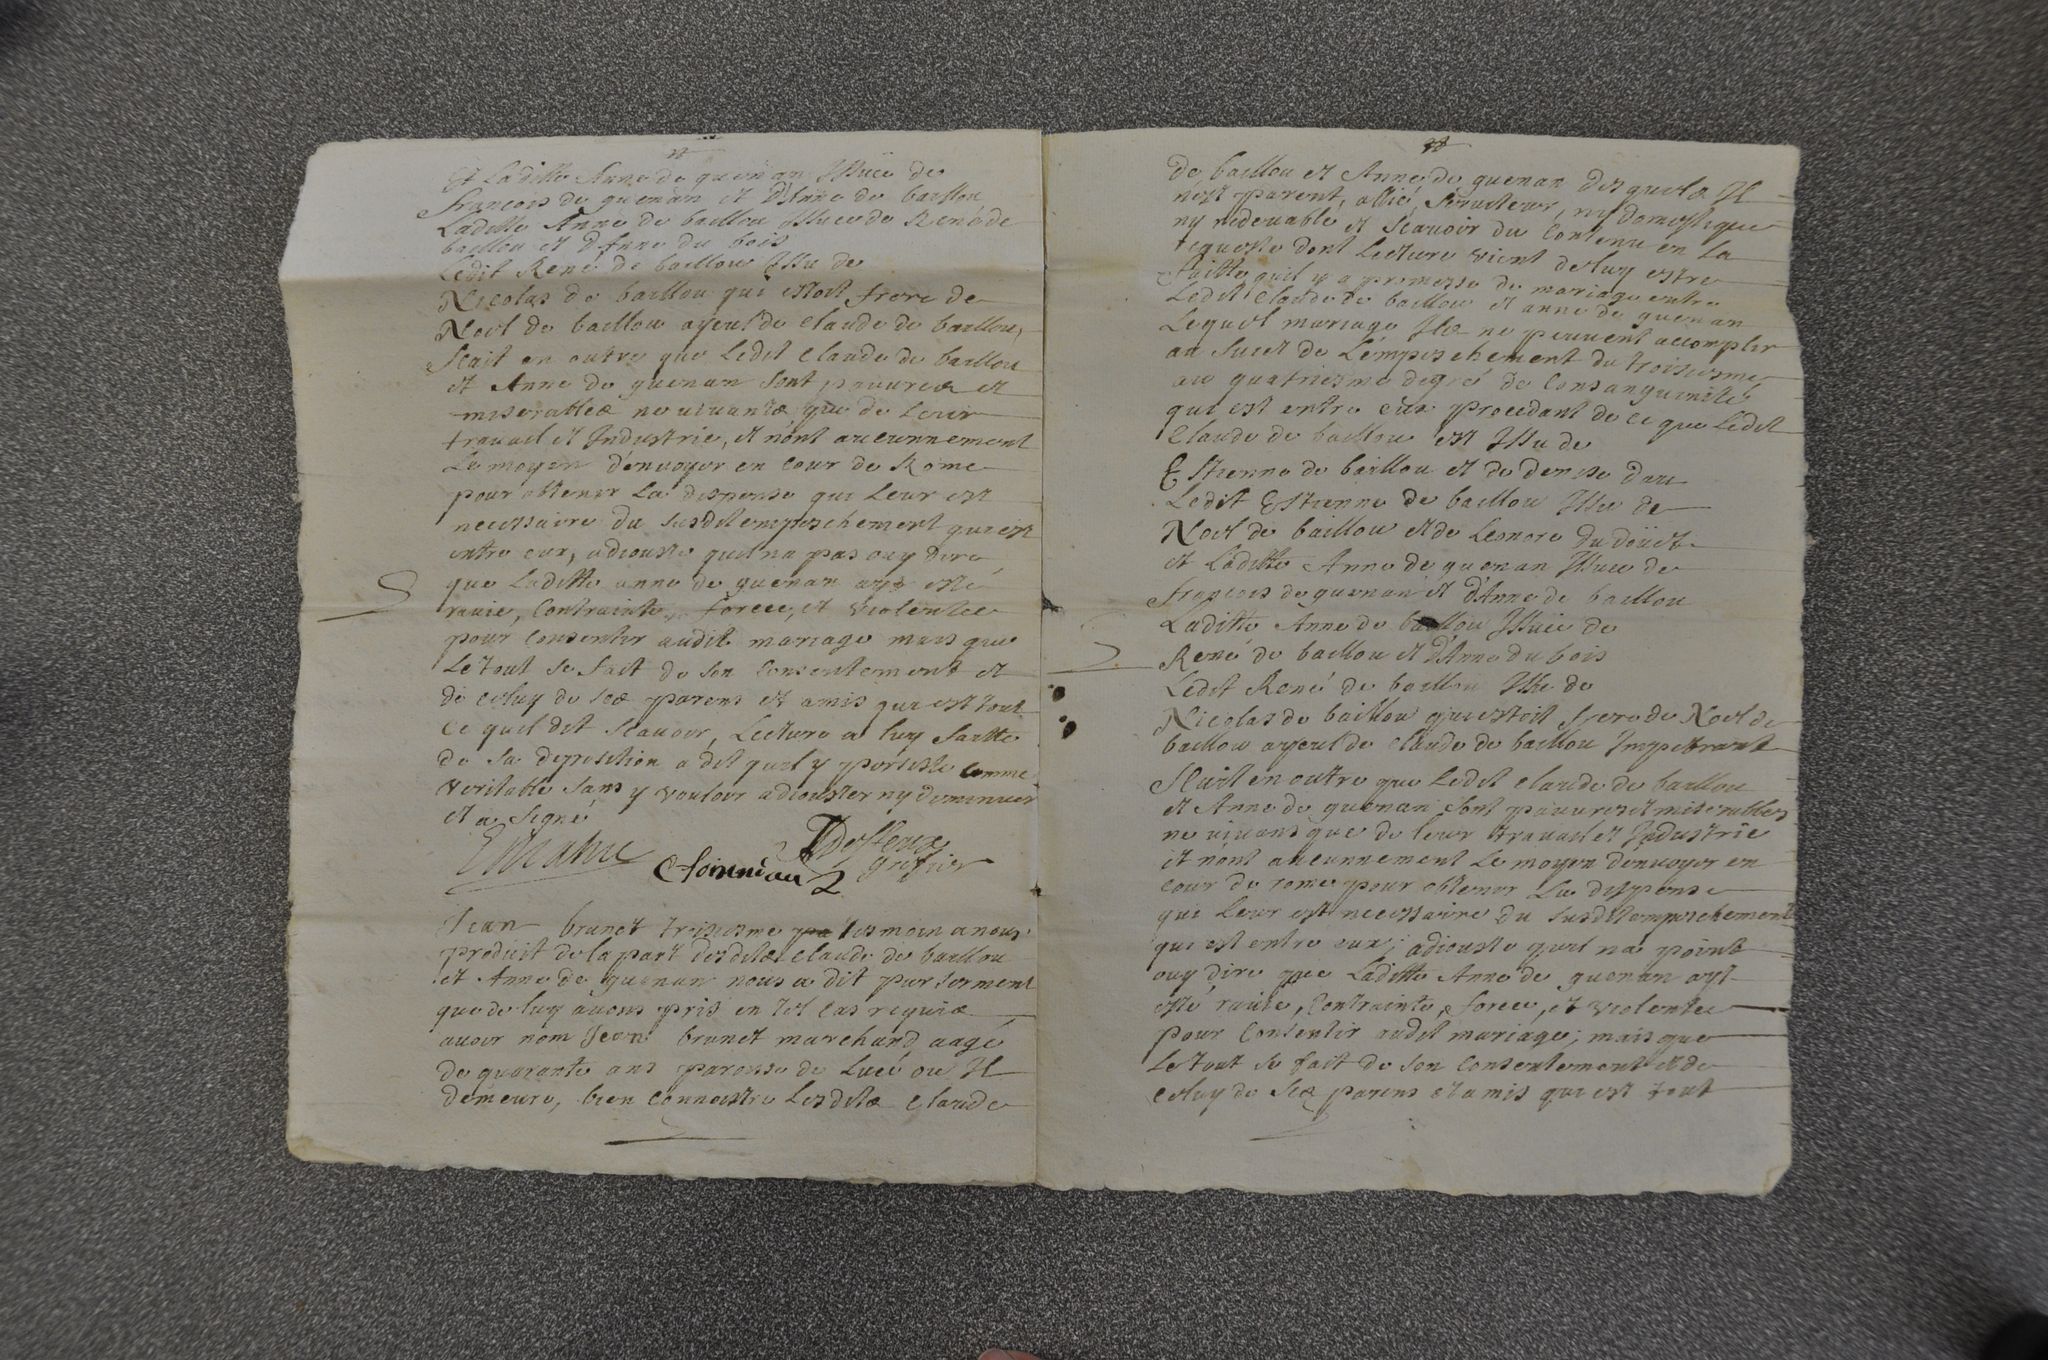 Et Laditte Anne de quenan Issüe de
francois de quenan et D'Anne de baillou
Laditte Anne de baillou Issue de René de
baillou et d'Anne du bois
Ledit René de baillou Issu de
Nicolas de baillou qui estoit frere de
Noel de baillou ayeul de Claude de baillou,
Scait en outre que Ledit Claude de baillou
et Anne de quenan sont pauvres et
miserables ne vivants que de Leur
travail et Industrie, et n'ont aucunnement
Le moyen d'envoyer en Cour de Rome
pour obtenir La dispense qui Leur est
necessaire du susdit empeschement qui est
entre eux, adiouste qu'il na pas ouy dire
que Laditte anne de quenan aye esté
ravie, Contrainte, forcee, et violentee
pour Consentir audit mariage mais que
Le tout se fait de son Consentement et
de celuy de ses parens et amis qui est tout
Ce quil dit Scavoir, Lecture a luy faitte
de sa deposition a dit quil y persiste comme
veritable sans y vouloir adiouster ny diminuer
et a signé
greffier
Jean brunet troisiesme tesmoin a nous
produit de la part desdits Claude de baillou
et Anne de quenan nous a dit par serment
que de luy avons pris en tel cas requis
avoir nom Jean brunet marchand aagé
de quarante ans paroisse de Lucé ou Il
demeure, bien Connoistre Lesdits Claude
de baillou et Anne de quenan desquels Il
n'est parent, allié, serviteur, ny domestique
ny redevable et scavoir du Contenu en La
requeste dont Lecture vient de luy estre
faitte quil y a promesse de mariage entre
Ledit Claude de baillou et anne de quenan
Lequel mariage Ils ne peuvent accomplir
au suiet de L'empeschement du troisiesme
au quatriesme degré de Consanguinité
qui est entre eux procedant de ce que Ledit
Claude de baillou est Issu de
Estienne de baillou et de denise
Ledit Estienne de baillou Issu de
Noel de baillou et de Leonore du doüet
et Laditte Anne de quenan Issue de
françois de quenan et D'Anne de baillou
Laditte Anne de baillou Issüe de
René de baillou et d'Anne du bois
Ledit René de baillou Issu de
Nicolas de baillou qui estoit frere de Noel de
baillou ayeul de Claude de baillou Impetrant
Scait en outre que Ledit Claude de baillou
et Anne de quenan sont pauvres et miserables
ne vivans que de leur travail et Industrie
et n'ont aucunnement Le moyen d'envoyer en
Cour de rome pour obtenir La dispense
qui Leur est necessaire du susdit empeschement
qui est entre eux; adiouste quil na point
ouy dire que Laditte Anne de quenan ayt
esté ravie, Contrainte, forcee, et violentee
pour Consentir audit mariage; mais que
Le tout se fait de son Consentement et de
Celuy de ses parens et amis qui est tout